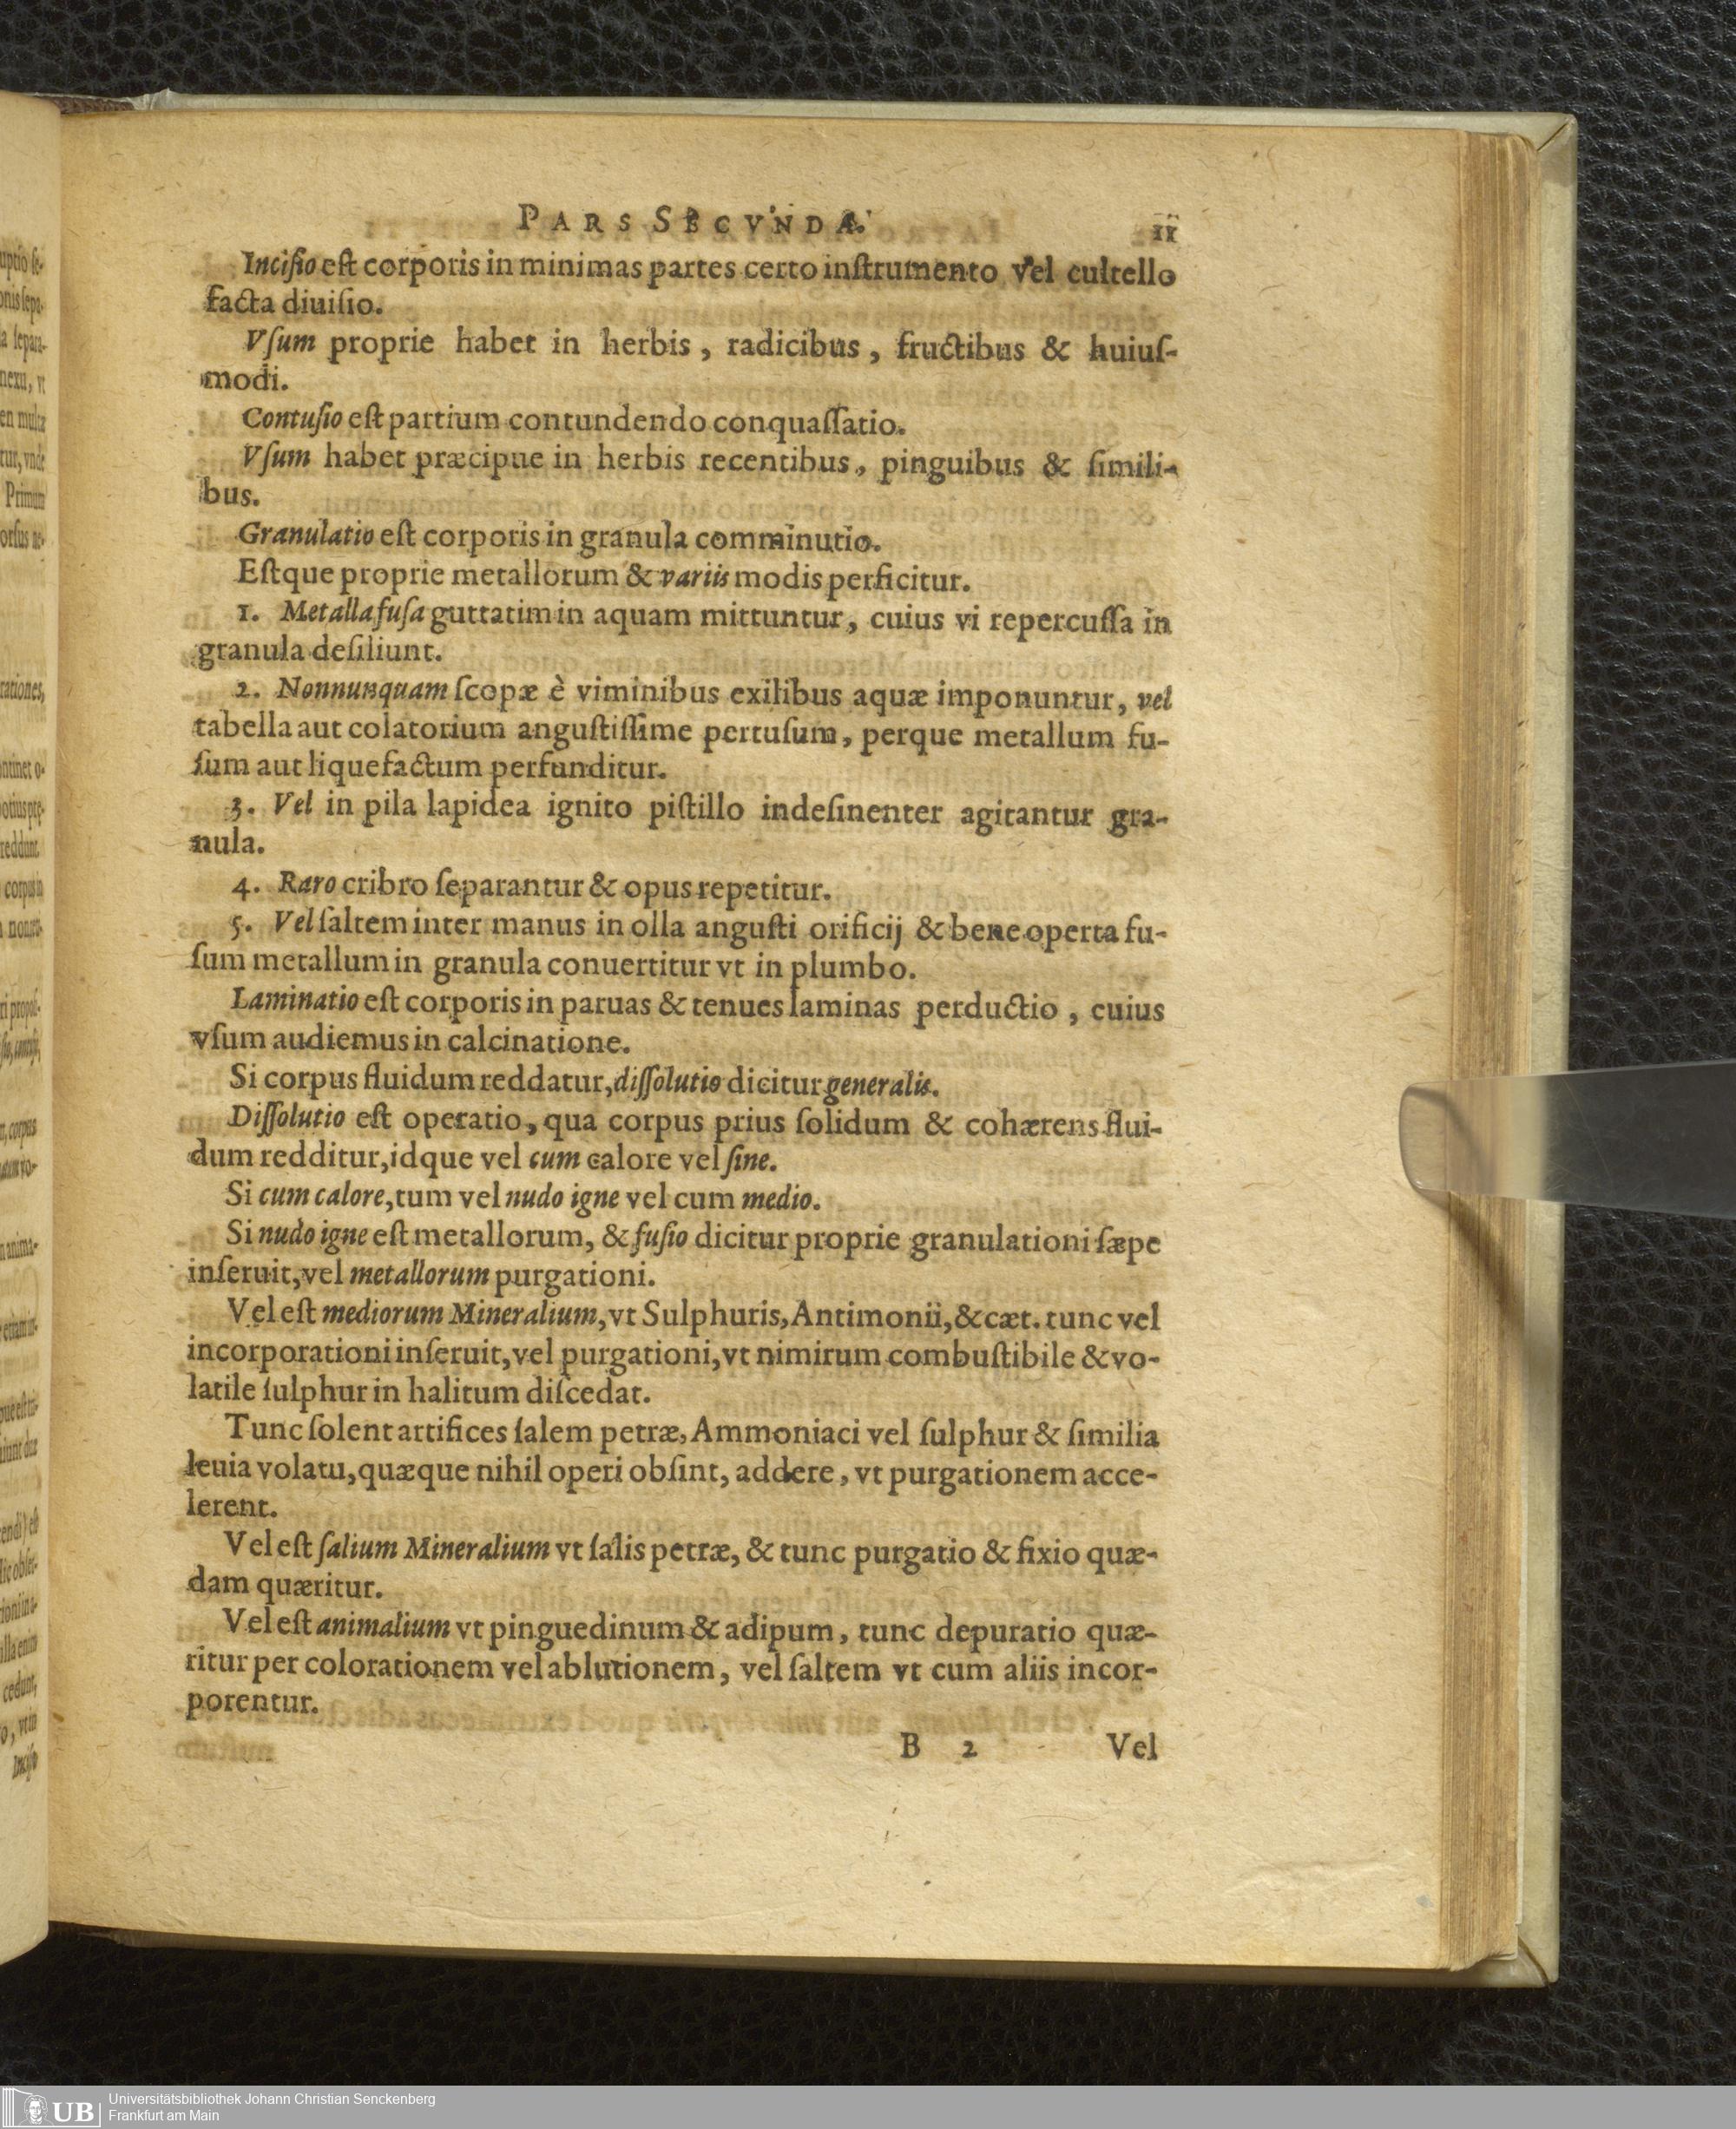 PARS SECVNDA. 11
Incisio est corporis in minimas partes certo instrumento vel cultello
facta diuisio.
Vsum proprie habet in herbis, radicibus, fructibus & huius-
modi.
Contusio est partium contundendo conquassatio.
Vsum habet præcipue in herbis recentibus, pinguibus & simili-
bus.
Granulatio est corporis in granula comminutio.
Estque proprie metallorum & variis modis perficitur.
1. Metalla fusa guttatim in aquam mittuntur, cuius vi repercussa in
granula desiliunt.
2. Nonnunquam scopæ è viminibus exilibus aquæ imponuntur, vel
tabella aut colatorium angustissime pertusum, perque metallum fu-
sum aut liquefactum perfunditur.
3. Vel in pila lapidea ignito pistillo indesinenter agitantur gra-
nula.
4. Raro cribro separantur & opus repetitur.
5. Vel saltem inter manus in olla angusti orificij & bene operta fu-
sum metallum in granula conuertitur vt in plumbo.
Laminatio est corporis in paruas & tenues laminas perductio, cuius
vsum audiemus in calcinatione.
Si corpus fluidum reddatur, dissolutio dicitur generalis.
Dissolutio est operatio, qua corpus prius solidum & cohærens flui-
dum redditur, idque vel cum calore vel sine.
Si cum calore, tum vel nudo igne vel cum medio.
Si nudo igne est metallorum, & fusio dicitur proprie granulationi sæpe
inseruit, vel metallorum purgationi.
Vel est mediorum Mineralium, vt Sulphuris, Antimonii, & cæt. tunc vel
incorporationi inseruit, vel purgationi, vt nimirum combustibile & vo-
latile sulphur in halitum discedat.
Tunc solent artifices salem petræ, Ammoniaci vel sulphur & similia
leuia volatu, quæque nihil operi obsint, addere, vt purgationem acce-
lerent.
Vel est salium Mineralium vt salis petræ, & tunc purgatio & fixio quæ-
dam quæritur.
Vel est animalium vt pinguedinum & adipum, tunc depuratio quæ-
ritur per colorationem vel ablutionem, vel saltem vt cum aliis incor-
porentur.
B 2 Vel
UB Universitätsbibliothek Johann Christian Senckenberg
Frankfurt am Main